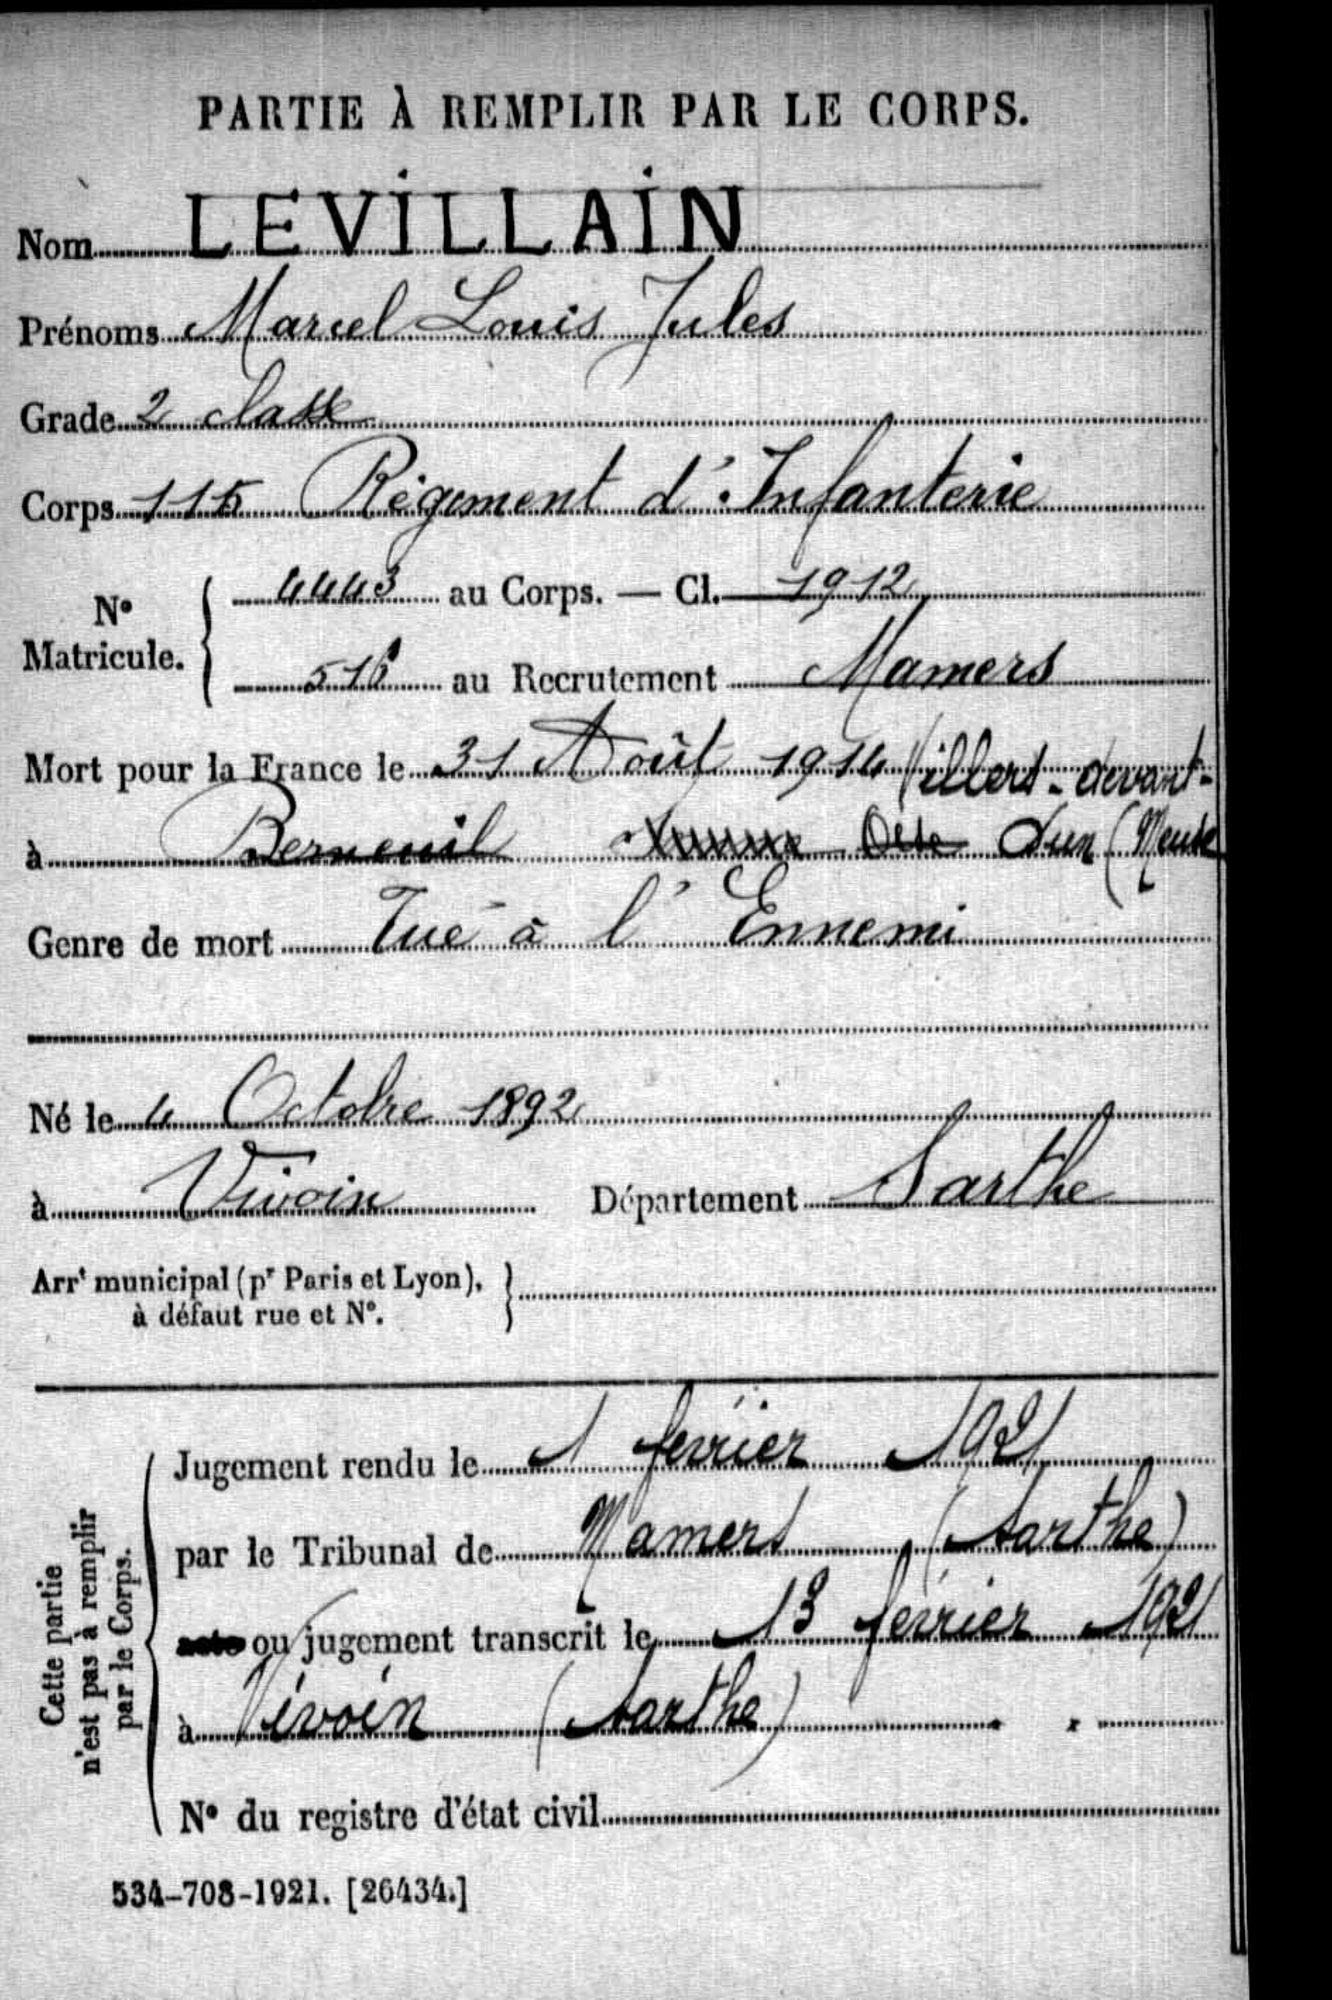 PARTIE À REMPLIR PAR LE CORPS.
Nom LEVILLAIN
Prénoms Marcel Louis Jules
Grade 2 classe
Corps 115 Régiment d'Infanterie
N° Matricule. 4443 au Corps. — Cl. 1912
516 au Recrutement Mamers
Mort pour la France le 31 Août 1914 Villers-devant-
à Berneuil Oise Dun (Meuse
Genre de mort Tué à l'Ennemi
Né le 4 Octobre 1892
à Vivoin Département Sarthe
Arrt municipal (pr Paris et Lyon),
à défaut rue et N°.
Cette partie
n'est pas à remplir
par le Corps.
Jugement rendu le 1 février 1921
par le Tribunal de Mamers (Sarthe)
acte ou jugement transcrit le 13 février 1921
à Vivoin (Sarthe)
N° du registre d'état civil
534-708-1921. [26434.]